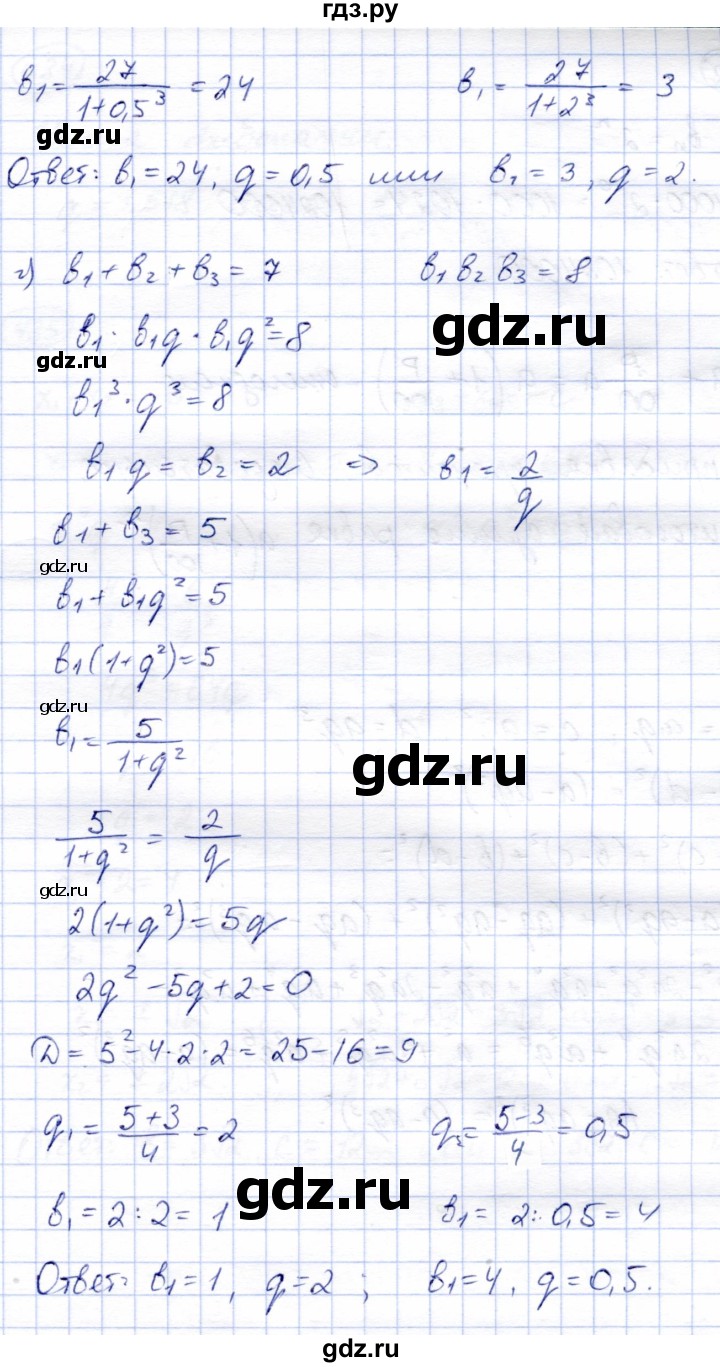 гдз.ру
в₁ = 27/(1+0,5³) = 24    в₁ = 27/(1+2³) = 3
gdz.ru
Ответ: в₁ = 24, q = 0,5 или в₁ = 3, q = 2.
г) в₁ + в₂ + в₃ = 7    в₁ в₂ в₃ = 8
gdz.ru
в₁ · в₁q · в₁q² = 8
gdz.ru
в₁³ · q³ = 8
в₁ q = в₂ = 2 => в₁ = 2/q
в₁ + в₃ = 5
gdz.ru
в₁ + в₁q² = 5
в₁(1+q²) = 5
gdz.ru
в₁ = 5/(1+q²)
gdz.ru
5/(1+q²) = 2/q
gdz.ru
2(1+q²) = 5q
2q² - 5q + 2 = 0
D = 5² - 4·2·2 = 25 - 16 = 9
q₁ = (5+3)/4 = 2    q₂ = (5-3)/4 = 0,5
gdz.ru
в₁ = 2 : 2 = 1    в₁ = 2 : 0,5 = 4
Ответ: в₁ = 1, q = 2; в₁ = 4, q = 0,5.
gdz.ru